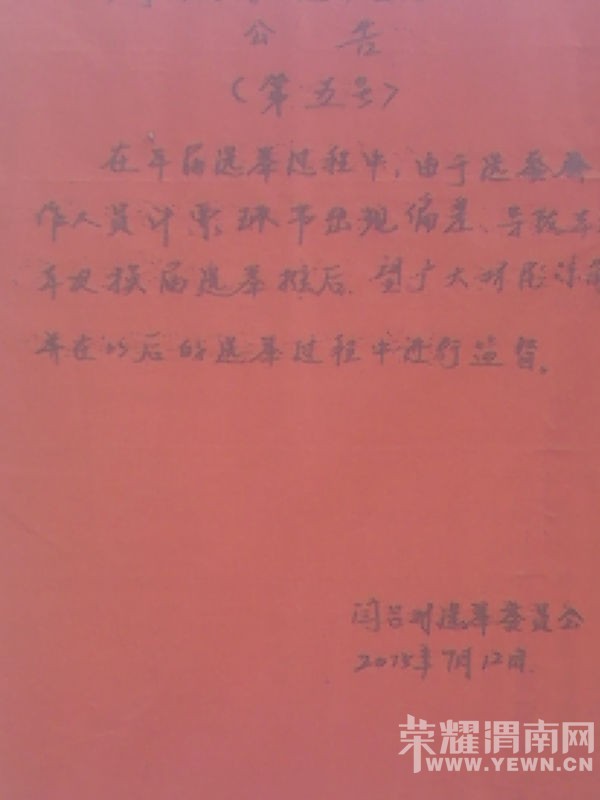 公告
（第五号）
在本届选举过程中,由于选委会
作人员计票环节出现偏差、导致本
年及换届选举推后.望广大村民谅
并在以后的选举过程中进行监督。
闫吕村选举委员会
2015年7月12日
荣耀渭南网
WWW.YEWN.CN